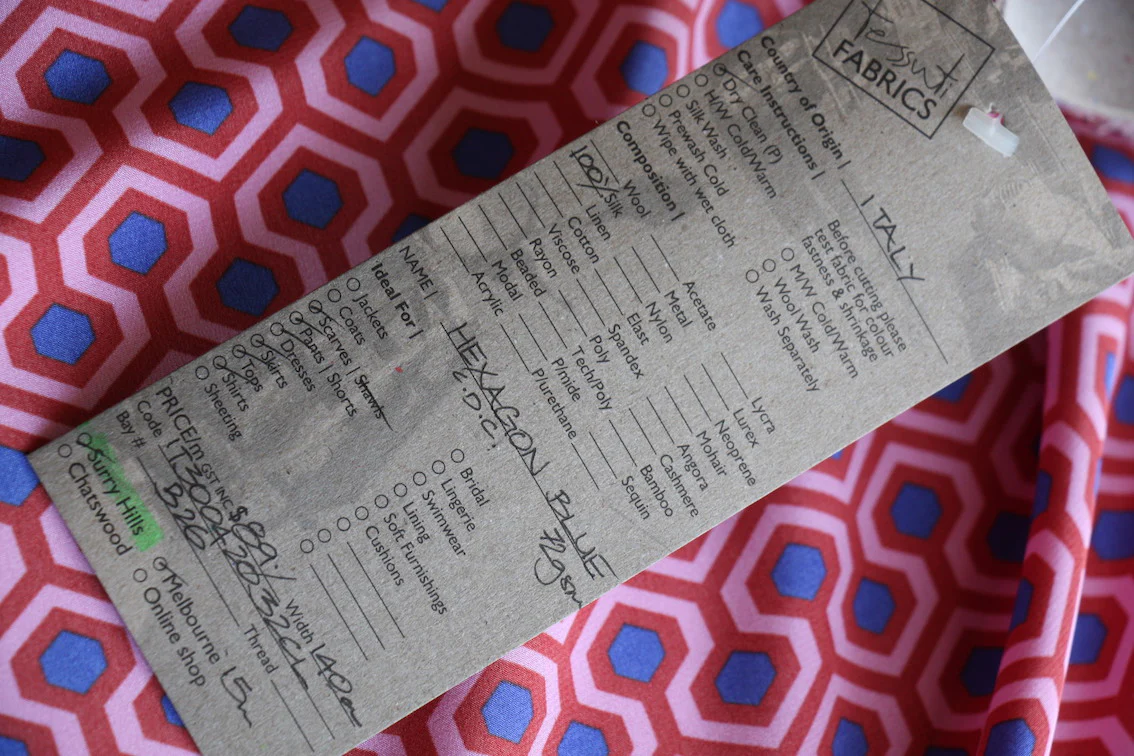 Tessuti
FABRICS
Country of Origin | ITALY
Care Instructions |
Dry Clean (P)
H/W Cold/Warm
Silk Wash
Prewash Cold
Wipe with wet cloth
Before cutting please
test fabric for colour
fastness & shrinkage
M/W Cold/Warm
Wool Wash
Wash Separately
Composition |
Wool
100% Silk
Linen
Cotton
Viscose
Rayon
Beaded
Modal
Acrylic
Acetate
Metal
Nylon
Elast
Spandex
Poly
Tech/Poly
P/mide
P/urethane
Lycra
Lurex
Neoprene
Mohair
Angora
Cashmere
Bamboo
Sequin
NAME | HEXAGON BLUE
C.D.C. 72gsm
Ideal For |
Jackets
Coats
Scarves | Shawls
Pants | Shorts
Dresses
Skirts
Tops
Shirts
Sheeting
Bridal
Lingerie
Swimwear
Lining
Soft Furnishings
Cushions
PRICE/m GST INC $89./ Width 140cm
Code
Bay # B26 Thread
Surry Hills
Chatswood
Melbourne 15m
Online shop